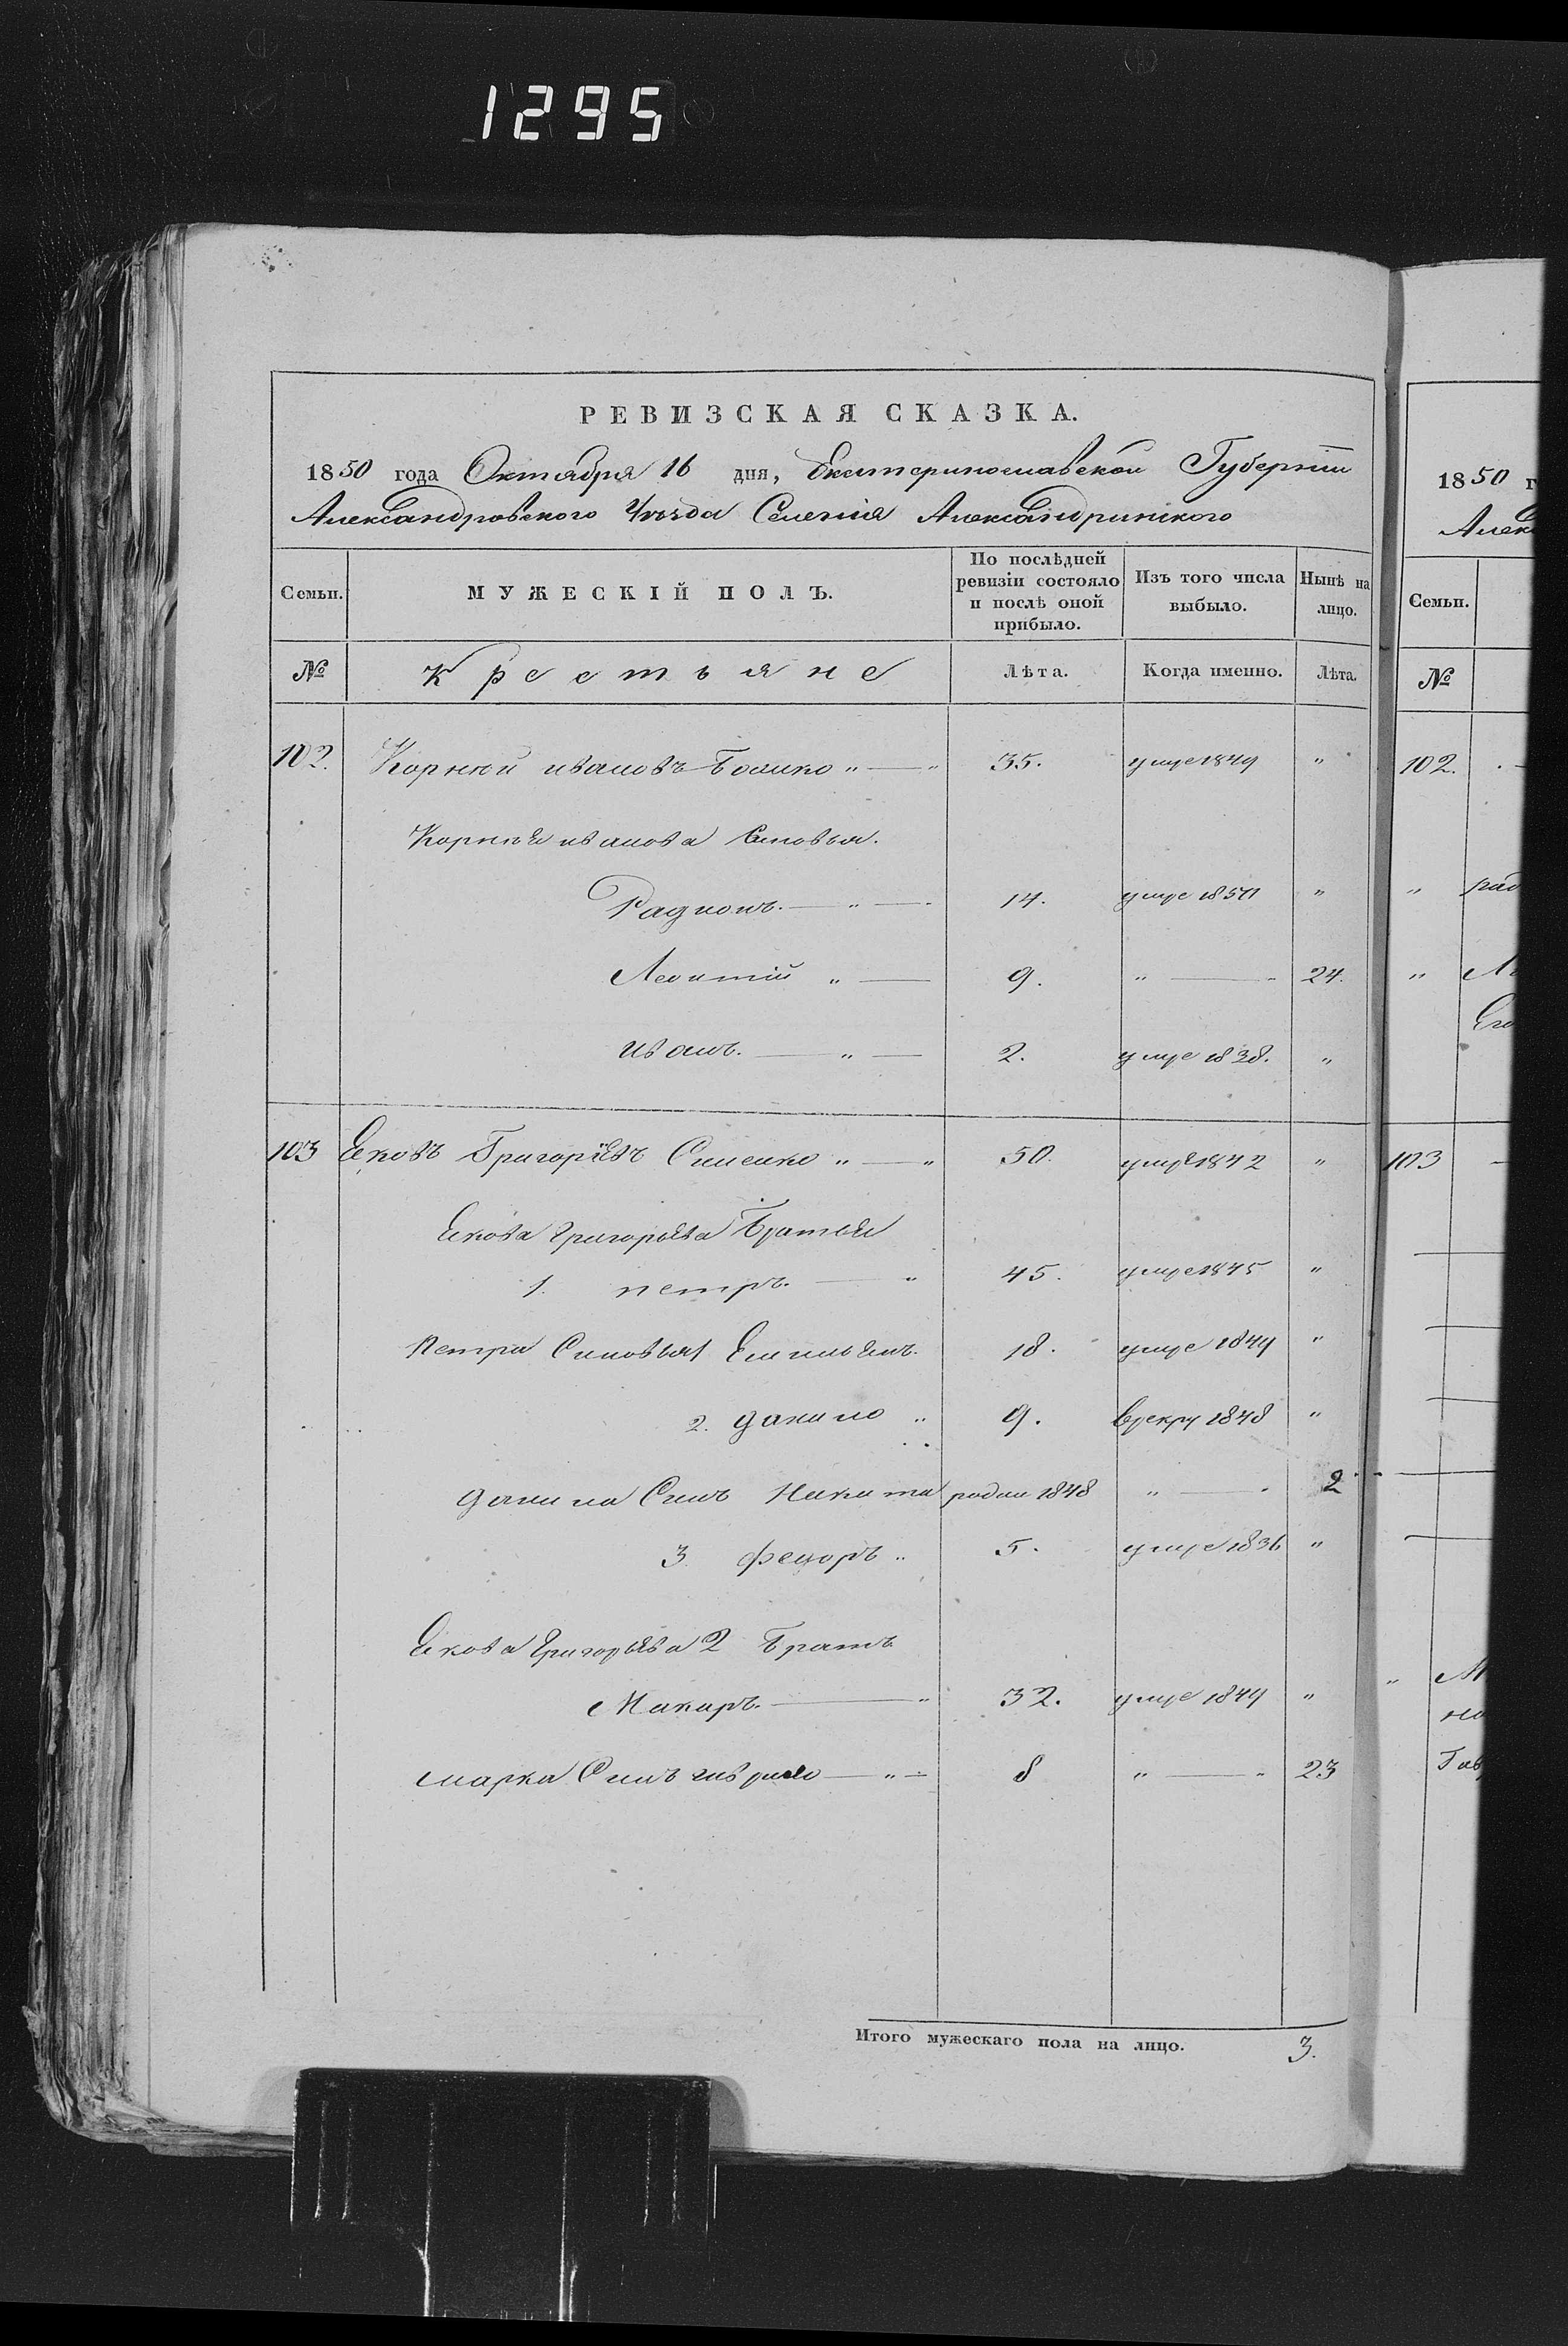 1295
РЕВИЗСКАЯ СКАЗКА.
1850 года Октября 16 дня, Екатеринославской Губерніи
Александровского Уѣзда Селенія Александринского
Семьи. МУЖЕСКІЙ ПОЛЪ. По послѣдней ревизіи состояло и послѣ оной прибыло. Изъ того числа выбыло. Нынѣ на лицо.
№ Крестьяне Лѣта. Когда именно. Лѣта.
102. Корнѣй ивановъ " — " 35. умре 1849 "
Корнѣя иванова Сыновья.
Радионъ. — " — 14. умре 1850 "
Леонтій " — 9. " — " 24.
иванъ. — " — 2. умре 1838. "
103 Яковъ Григорїевъ " — " 50. умре 1842 "
Якова григорьева Братья
1. петръ. — " 45. умре 1845 "
Петра Сыновья 1 Емильянъ. 18. умре 1849 "
2. данило " 9. врекру 1848 "
данила Сынъ Никита родил 1848 " — " 2
3. федоръ " 5. умре 1836 "
Якова Григорьева 2 Братъ
Макаръ. — " 32. умре 1849 "
Сынъ гаврило — " — 8 " — " 23
Итого мужескаго пола на лицо. 3.
1850 г
Алек
Семьи.
№
102.
" рад
"
Его
103
" М
Гав